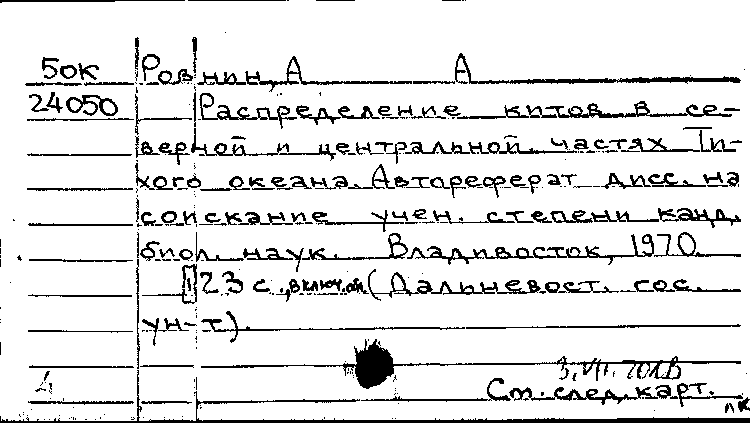 50К Ровнин, А А
24050 Распределение китов в се-
верной и центральной частях Ти-
хого океана. Автореферат дисс. на
соискание учен. степени канд.
биол. наук. Владивосток, 1970.
23 с., включ. обл. (Дальневост. гос.
ун-т).
3.VII.
См. след. карт.